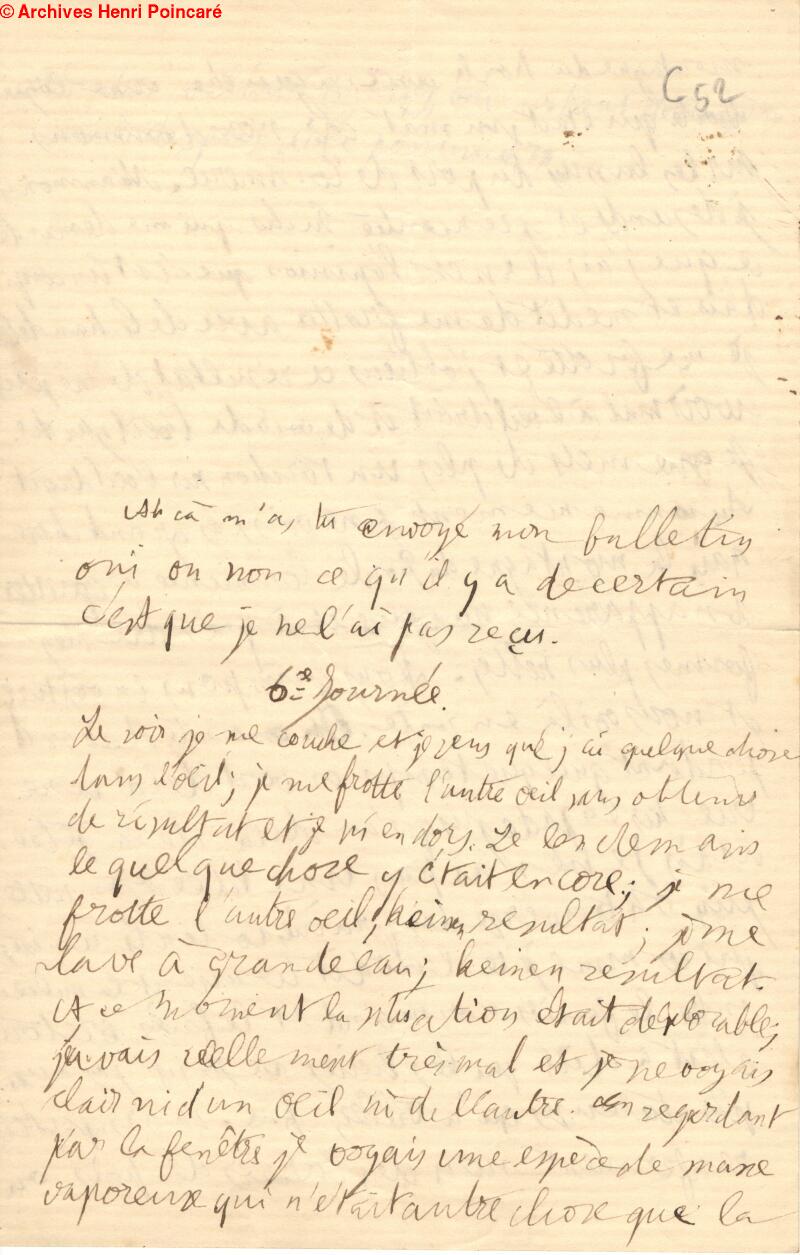 © Archives Henri Poincaré
C 52
Ah çà m'as tu envoyé mon bulletin
oui ou non ce qu'il y a de certain
c'est que je ne l'ai pas reçu.
6e Journée.
Le soir je me couche et je sens que j'ai quelque chose
dans l'œil; je me frotte l'autre œil sans obtenir
de résultat et je m'endors. Le lendemain
le quelque chose y était encore; je me
frotte l'autre œil, keinen resultat; je me
lave à grande eau; keinen resultat.
A ce moment la situation était déplorable;
j'avais réellement très mal et je ne voyais
clair ni d'un œil ni de l'autre. En regardant
par la fenêtre je voyais une espèce de masse
vaporeuse qui n'était autre chose que la